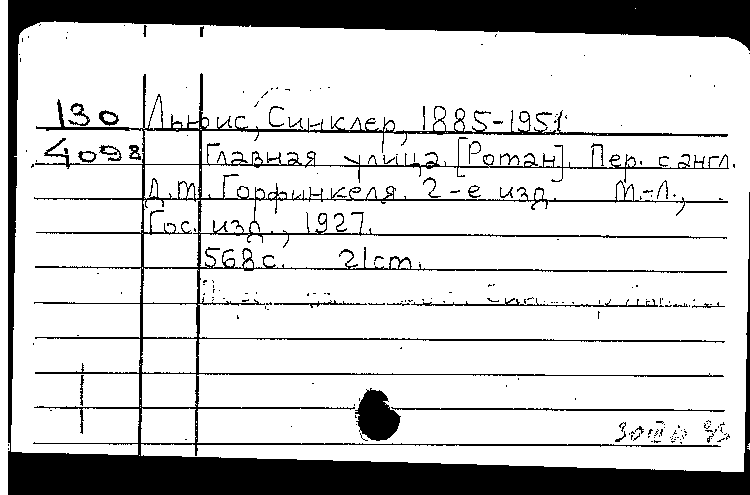 130 Льюис, Синклер, 1885-1951
4098 Главная улица. [Роман]. Пер. с англ.
Д.М. Горфинкеля. 2-е изд. М.-Л.,
Гос. изд., 1927.
568с. 21см.